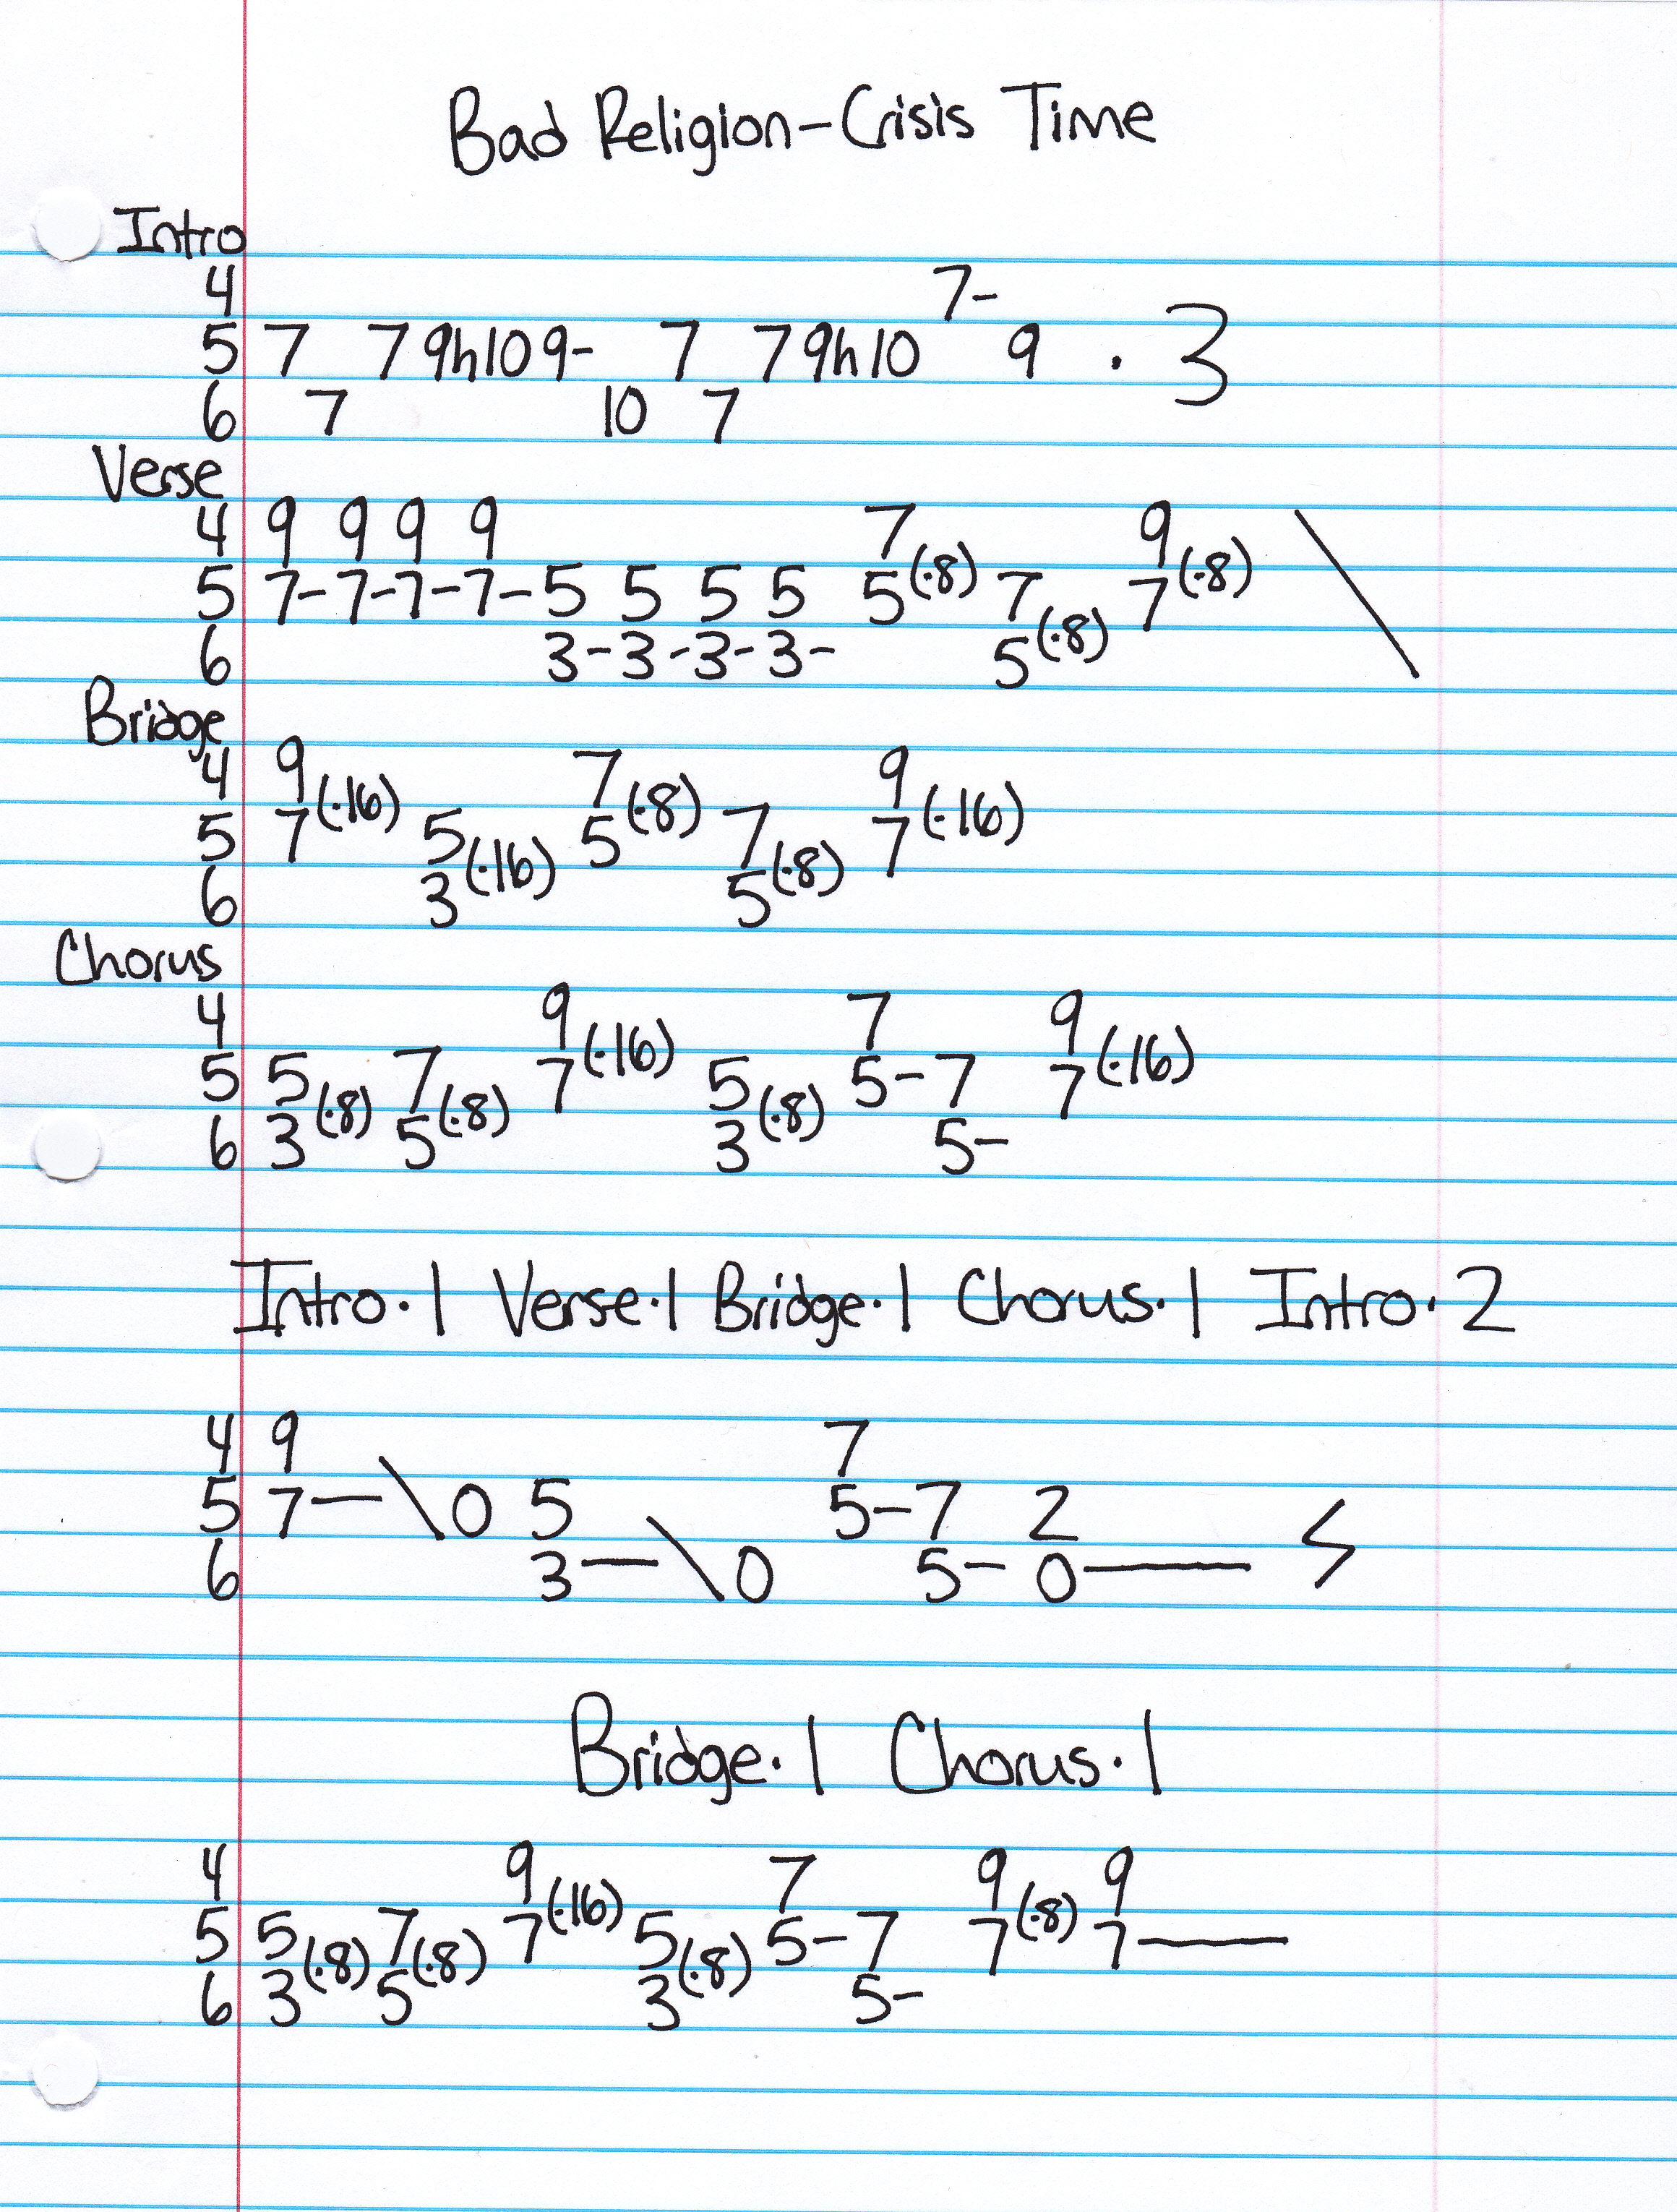 Bad Religion-Crisis Time
Intro
4 7-
5 7 7 9h10 9- 7 7 9h10 9 · 3
6 7 10 7
Verse
4 9 9 9 9 7 9
5 7-7-7-7-5 5 5 5 5(·8) 7 7(·8) \
6 3-3-3-3- 5(·8)
Bridge
4 9 7 9
5 7(·16) 5 5(·8) 7 7(·16)
6 3(·16) 5(·8)
Chorus
4 9 7 9
5 5 7 7(·16) 5 5-7 7(·16)
6 3(·8) 5(·8) 3(·8) 5-
Intro·1 Verse·1 Bridge·1 Chorus·1 Intro·2
4 9 7
5 7—\0 5 5-7 2
6 3—\0 5- 0—
Bridge·1 Chorus·1
4 9 7 9 9
5 5 7 7(·16) 5 5-7 7(·8) 7—
6 3(·8) 5(·8) 3(·8) 5-